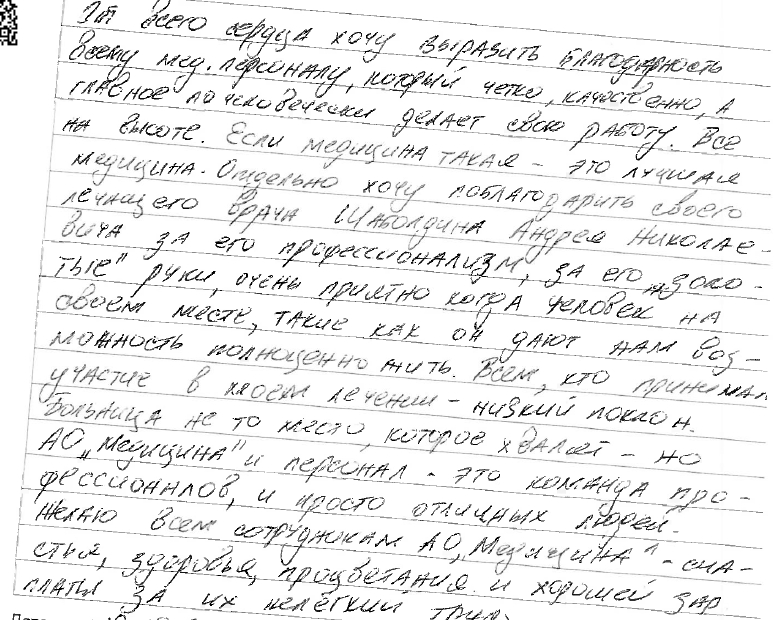 От всего сердца хочу выразить благодарность
всему мед. персоналу, который четко, качественно, а
главное по человечески делает свою работу. Все
на высоте. Если медицина такая - это лучшая
медицина. Отдельно хочу поблагодарить своего
лечащего врача Шаболдина Андрея Николае-
вича за его профессионализм, за его „золо-
тые" руки, очень приятно когда человек на
своем месте, такие как он дают нам воз-
можность полноценно жить. Всем, кто принимал
участие в моем лечении - низкий поклон.
Больница не то место, которое хвалят - но
АО „Медицина" и персонал - это команда про-
фессионалов, и просто отличных людей.
Желаю всем сотрудникам АО „Медицина" - сча-
стья, здоровья, процветания и хорошей зар
платы за их нелёгкий труд